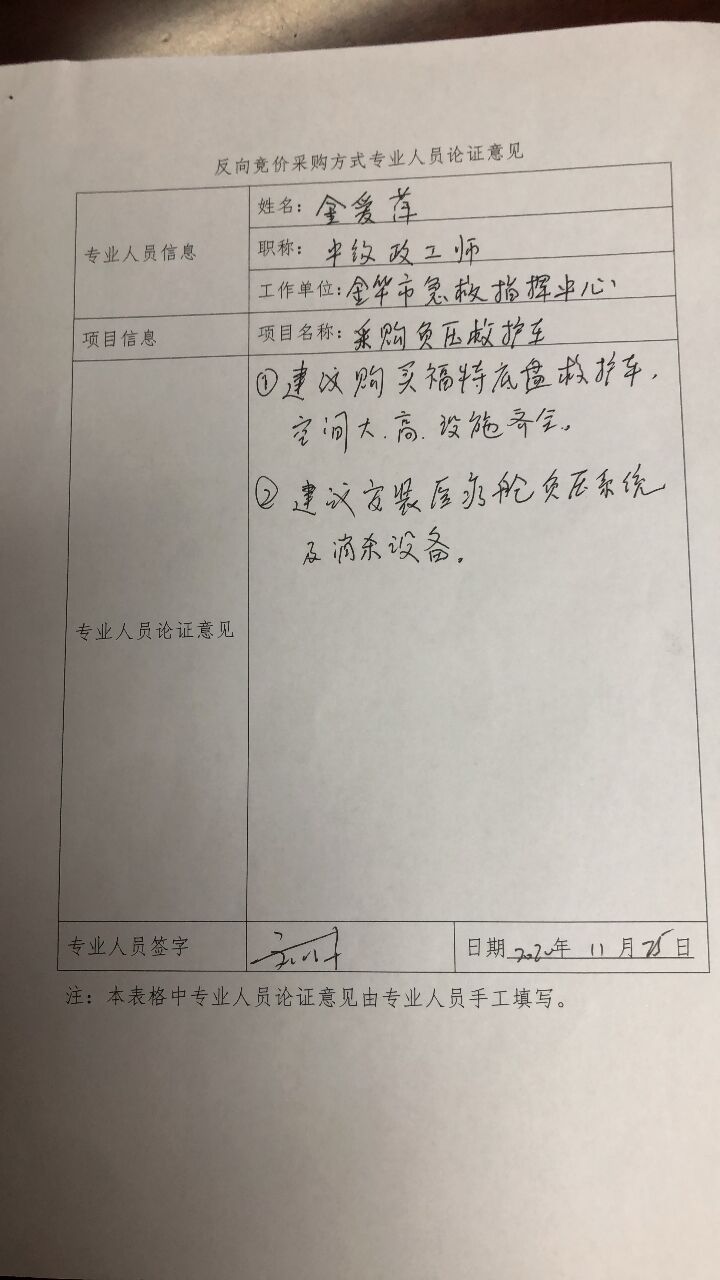 反向竞价采购方式专业人员论证意见
专业人员信息
姓名：金爱萍
职称：中级政工师
工作单位：金华市急救指挥中心
项目信息
项目名称：采购负压救护车
专业人员论证意见
①建议购买福特底盘救护车，
空间大、高、设施齐全。
②建议安装医疗舱负压系统
及消杀设备。
专业人员签字
日期 2020年 11 月 25 日
注：本表格中专业人员论证意见由专业人员手工填写。